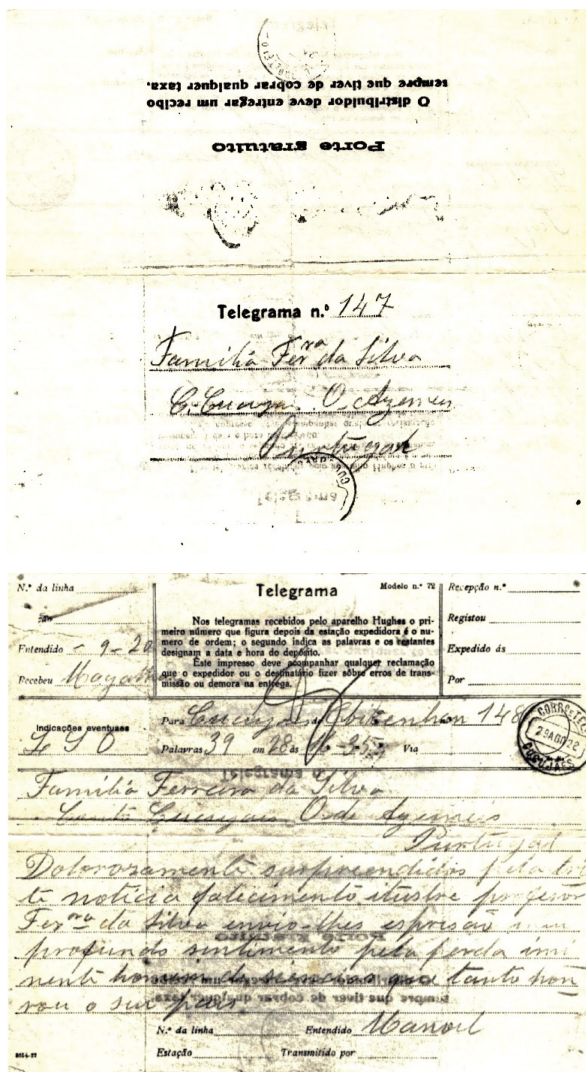 O distribuidor deve entregar um recibo
sempre que tiver de cobrar qualquer taxa.
Porte gratuito
Telegrama n.º 147
Familia Ferra da Silva
O. Azemeis
Portugal
N.º da linha
Telegrama
Modelo n.º 72
Recepção n.º
Nos telegramas recebidos pelo aparelho Hughes o pri-
meiro número que figura depois da estação expedidora é o nu-
mero de ordem; o segundo indica as palavras e os restantes
designam a data e hora do depósito.
Este impresso deve acompanhar qualquer reclamação
que o expedidor ou o destinatário fizer sôbre erros de trans-
missão ou demora na entrega.
Registou
Entendido - 9-20
Expedido ás
Recebeu
Por
Indicações eventuaes
Para
Palavras 39 em 28 ás Via
CORREIO
Familia Ferreira da Silva
Portugal
Dolorozamente surpreendidos pela tris
te noticia falecimento ilustre profesor
Ferra da Silva envio-lhes espresão meu
profundo sentimento pela perda imi
nente homem de sciencia que tanto hon
rou o seu pais
N.º da linha Entendido Manoel
Estação Transmitido por